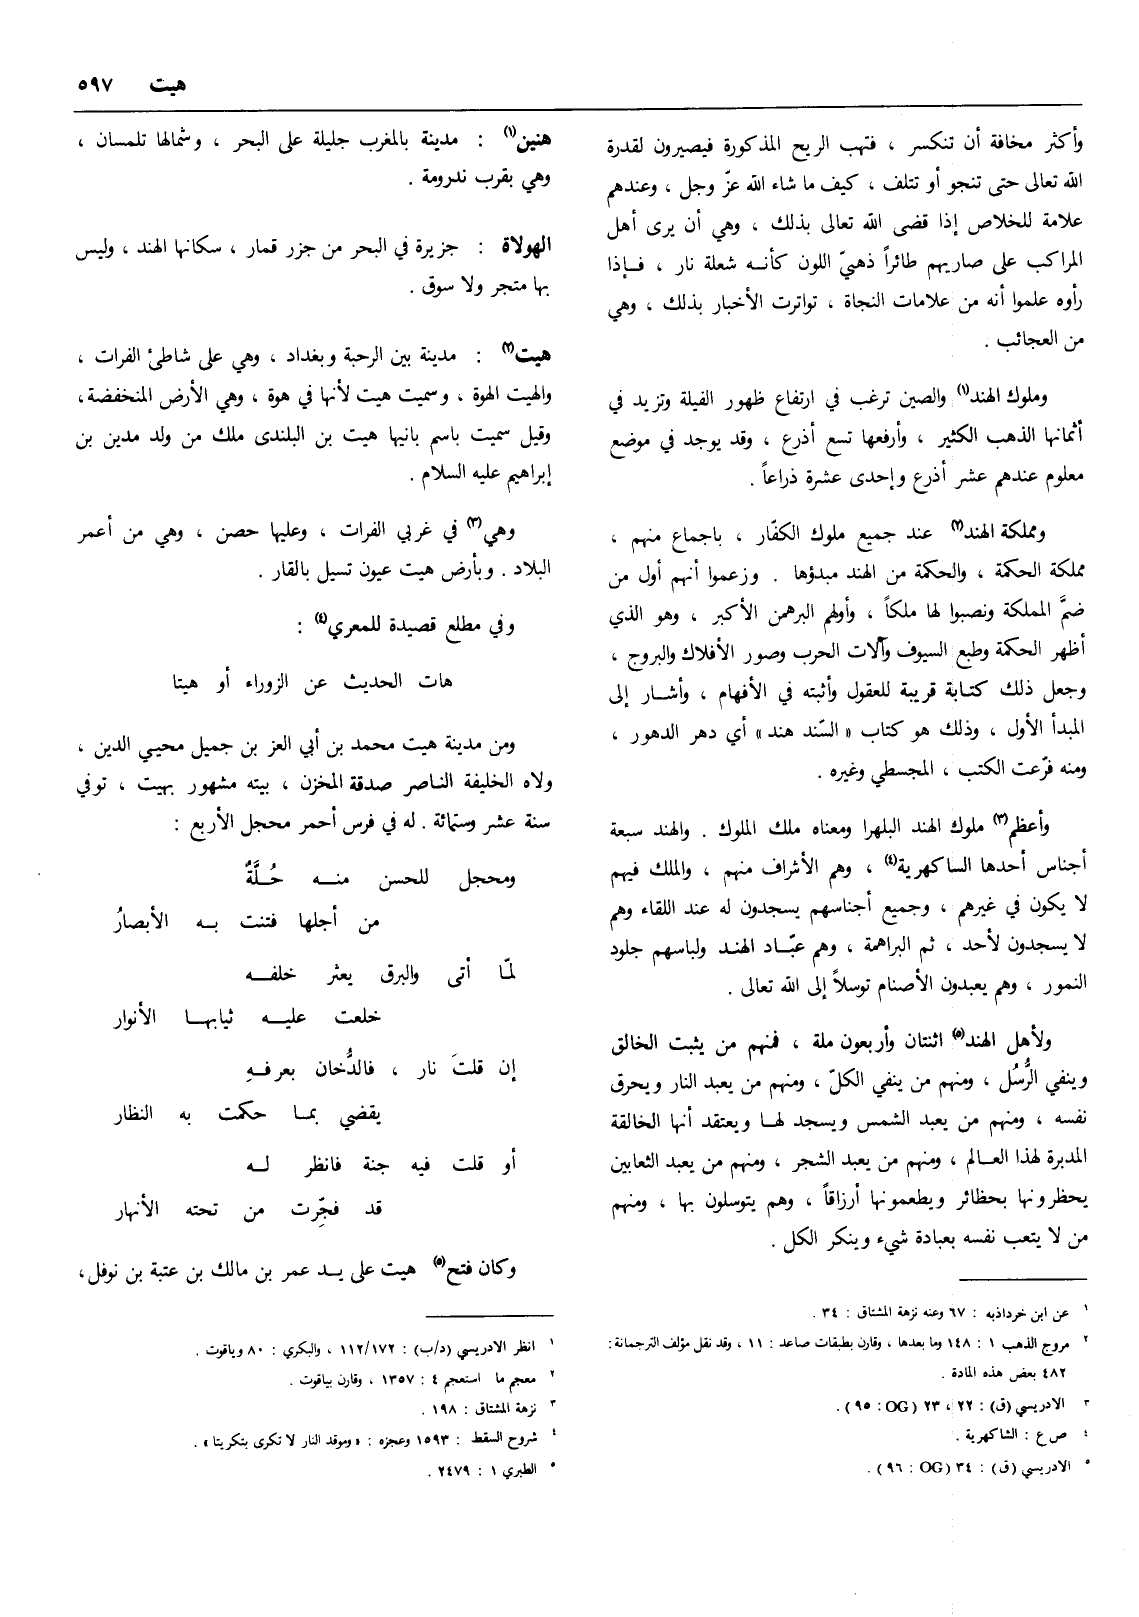 هيت ٥٩٧
وأكثر مخافة أن تنكسر ، فتهب الريح المذكورة فيصيرون لقدرة
الله تعالى حتى تنجو أو تتلف ، كيف ما شاء الله عزّ وجل ، وعندهم
علامة للخلاص إذا قضى الله تعالى بذلك ، وهي أن يرى أهل
المراكب على صاريهم طائراً ذهبيّ اللون كأنه شعلة نار ، فإذا
رأوه علموا أنه من علامات النجاة ، تواترت الأخبار بذلك ، وهي
من العجائب .
وملوك الهند(١) والصين ترغب في ارتفاع ظهور الفيلة وتزيد في
أثمانها الذهب الكثير ، وأرفعها تسع أذرع ، وقد يوجد في موضع
معلوم عندهم عشر أذرع وإحدى عشرة ذراعاً .
ومملكة الهند(٢) عند جميع ملوك الكفّار ، باجماع منهم ،
مملكة الحكمة ، والحكمة من الهند مبدؤها . وزعموا أنهم أول من
ضمَّ المملكة ونصبوا لها ملكاً ، وأولهم البرهمن الأكبر ، وهو الذي
أظهر الحكمة وطبع السيوف وآلات الحرب وصور الأفلاك والبروج ،
وجعل ذلك كتابة قريبة للعقول وأثبته في الأفهام ، وأشار إلى
المبدأ الأول ، وذلك هو كتاب « السّند هند » أي دهر الدهور ،
ومنه فرّعت الكتب ، المجسطي وغيره .
وأعظم(٣) ملوك الهند البلهرا ومعناه ملك الملوك . والهند سبعة
أجناس أحدها الساكهرية(٤) ، وهم الأشراف منهم ، والملك فيهم
لا يكون في غيرهم ، وجميع أجناسهم يسجدون له عند اللقاء وهم
لا يسجدون لأحد ، ثم البراهمة ، وهم عبّاد الهند ولباسهم جلود
النمور ، وهم يعبدون الأصنام توسلاً إلى الله تعالى .
ولأهل الهند(٥) اثنتان وأربعون ملة ، فمنهم من يثبت الخالق
وينفي الرُّسُل ، ومنهم من ينفي الكلّ ، ومنهم من يعبد النار ويحرق
نفسه ، ومنهم من يعبد الشمس ويسجد لها ويعتقد أنها الخالقة
المدبرة لهذا العالم ، ومنهم من يعبد الشجر ، ومنهم من يعبد الثعابين
يحظرونها بحظائر ويطعمونها أرزاقاً ، وهم يتوسلون بها ، ومنهم
من لا يتعب نفسه بعبادة شيء وينكر الكل .
١ عن ابن خرداذبه : ٦٧ وعنه نزهة المشتاق : ٣٤ .
٢ مروج الذهب ١ : ١٤٨ وما بعدها ، وقارن بطبقات صاعد : ١١ ، وقد نقل مؤلف الترجمانة :
٤٨٢ بعض هذه المادة .
٣ الادريسي (ق) : ٢٢ ، ٢٣ (OG : ٩٥) .
٤ ص ع : الشاكهرية .
٥ الادريسي (ق) : ٣٤ (OG : ٩٦) .
هنين(١) : مدينة بالمغرب جليلة على البحر ، وشمالها تلمسان ،
وهي بقرب ندرومة .
الهولاة : جزيرة في البحر من جزر قمار ، سكانها الهند ، وليس
بها متجر ولا سوق .
هيت(٢) : مدينة بين الرحبة وبغداد ، وهي على شاطئ الفرات ،
والهيت الهوة ، وسميت هيت لأنها في هوة ، وهي الأرض المنخفضة ،
وقيل سميت باسم بانيها هيت بن البلندى ملك من ولد مدين بن
إبراهيم عليه السلام .
وهي(٣) في غربي الفرات ، وعليها حصن ، وهي من أعمر
البلاد . وبأرض هيت عيون تسيل بالقار .
وفي مطلع قصيدة للمعري(٤) :
هات الحديث عن الزوراء أو هيتا
ومن مدينة هيت محمد بن أبي العز بن جميل محيي الدين ،
ولاه الخليفة الناصر صدقة المخزن ، بيته مشهور بهيت ، توفي
سنة عشر وستمائة . له في فرس أحمر محجل الأربع :
ومحجل للحسن منه حُلَّةٌ
من أجلها فتنت به الأبصارُ
لمّا أتى والبرق يعثر خلفه
خلعت عليه ثيابها الأنوار
إن قلتَ نار ، فالدُّخان بعرفهِ
يقضي بما حكمت به النظار
أو قلت فيه جنة فانظر له
قد فجِّرت من تحته الأنهار
وكان فتح(٥) هيت على يد عمر بن مالك بن عتبة بن نوفل ،
١ انظر الادريسي (د/ب) : ١١٢/١٧٢ ، والبكري : ٨٠ وياقوت .
٢ معجم ما استعجم ٤ : ١٣٥٧ ، وقارن بياقوت .
٣ نزهة المشتاق : ١٩٨ .
٤ شروح السقط : ١٥٩٣ وعجزه : « وموقد النار لا تكرى بتكريتا » .
٥ الطبري ١ : ٢٤٧٩ .